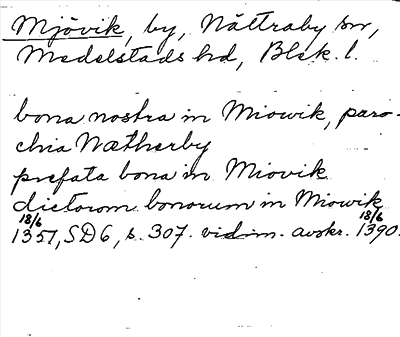 Mjövik, by, Nättraby sn,
Medelstads hd, Blek. l.
bona nostra in Miowik, paro-
chia Nætherby
prefata bona in Miovik
dictorom bonorum in Miowik
18/6 1357, SD 6, s. 307. vidim. avskr. 18/6 1390.